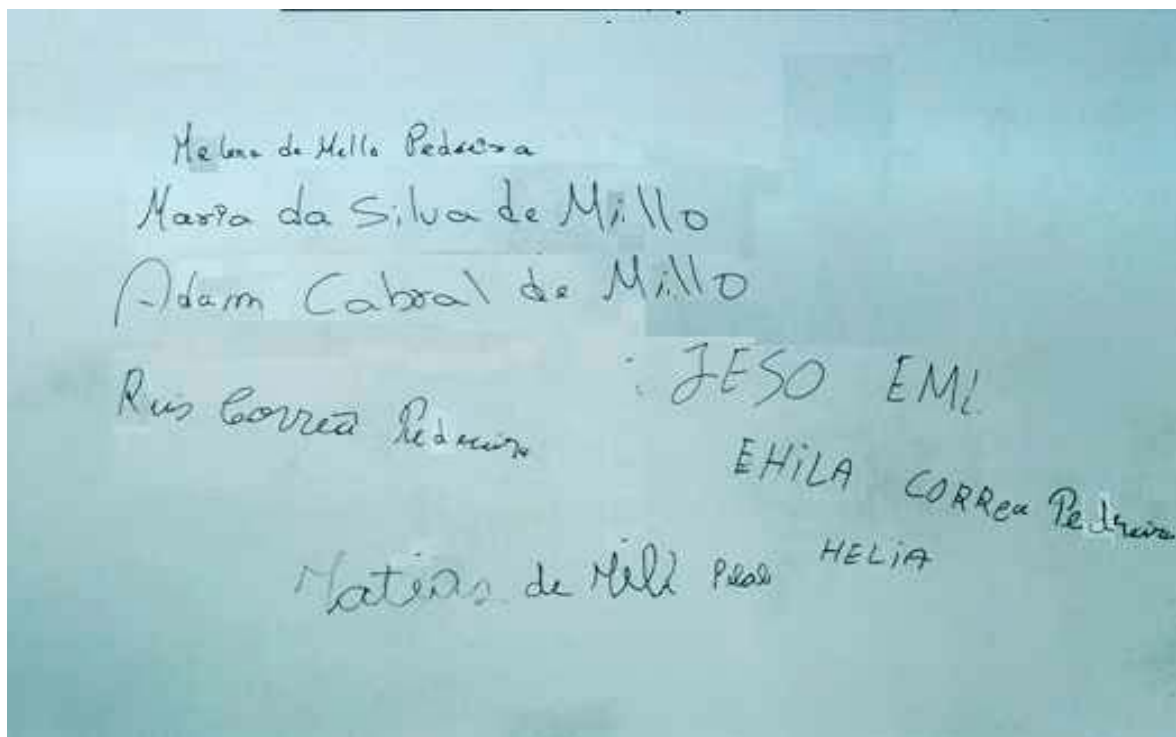 Helena de Mello Pedreira
Maria da Silva de Millo
Adam Cabral de Millo
Ruis Correa Pedreira
: JESO EML
EHiLA CORRea Pedreira
HELiA
Matias de